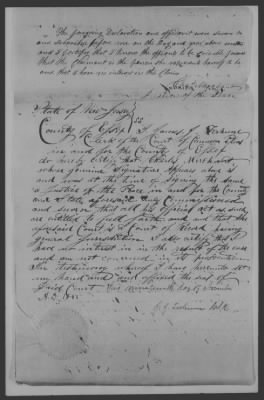 The foregoing Declaration and affidavit were sworn to
and subscribed before me on the day and year above written
and I certify that I know the affiant to be credible and
that the Claimant is the person she represents herself to be
and that I have no interest in the Claim
of the Peace
State of New Jersey
County of Essex SS I James J.
Clerk of the Court of Common Pleas
in and for the County of Essex
do hereby certify that Charles
whose genuine Signature appears above is
and was at the time of signing the same
a Justice of the Peace in and for the County
and State aforesaid duly Commissioned
and sworn that all his Official acts as such
are entitled to full faith and credit and that the
aforesaid Court is a Court of Record having
general Jurisdiction I also certify that I
have no interest in the result of the case
and am not concerned in its prosecution
In testimony whereof I have hereunto set
my hand and affixed the seal of
said Court this day of
A.D.
Clk